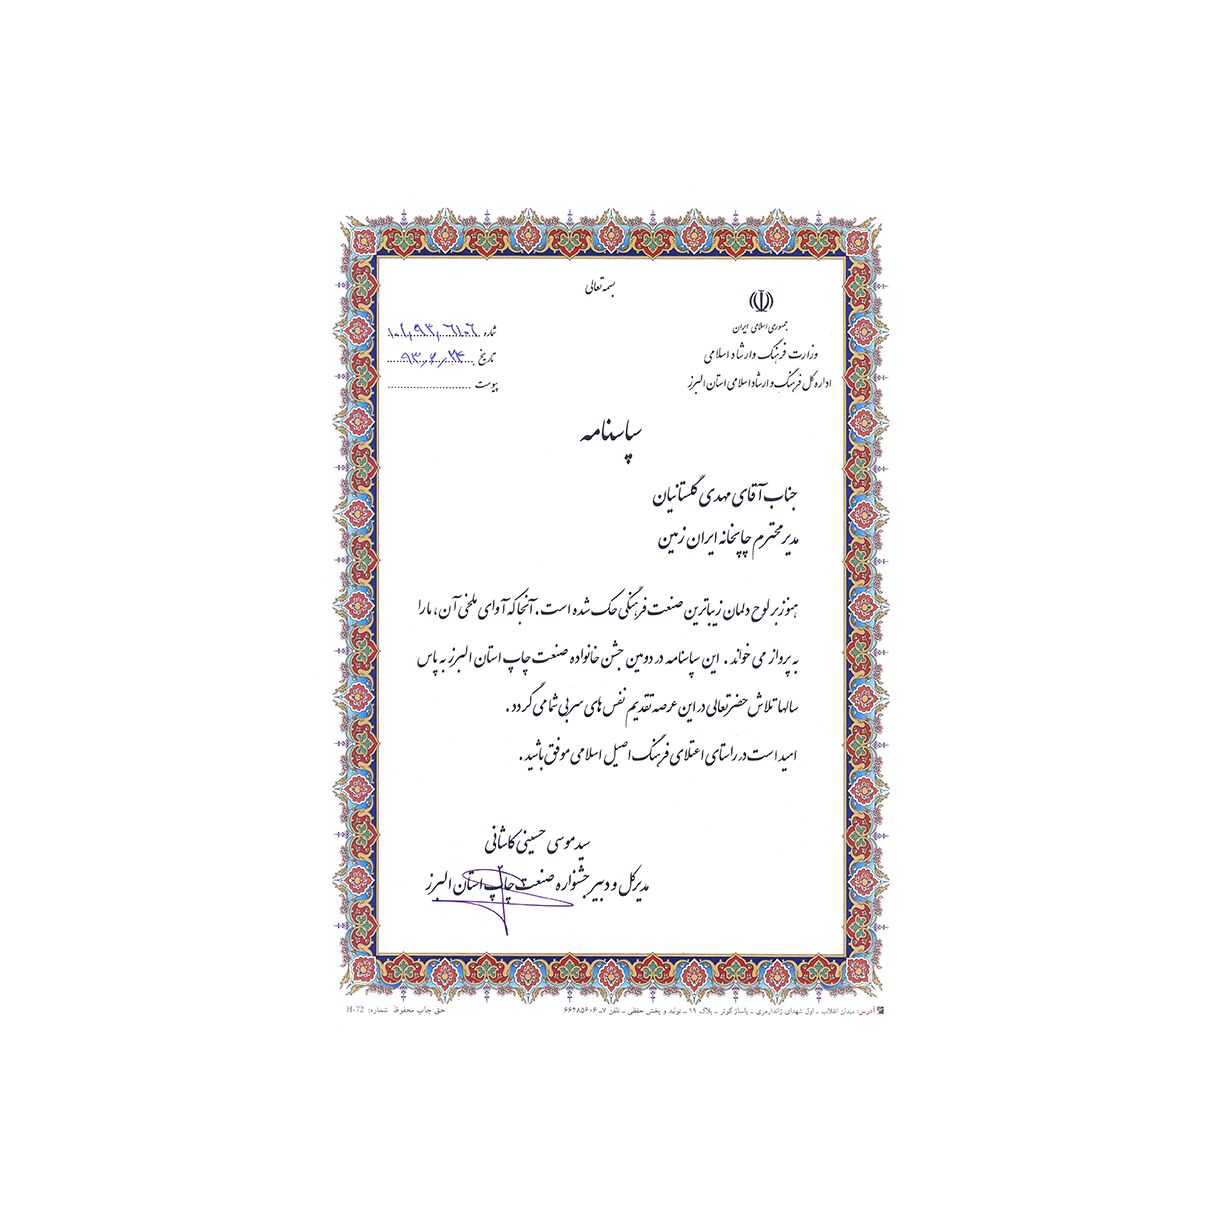 بسمه تعالی
جمهوری اسلامی ایران
وزارت فرهنگ و ارشاد اسلامی
اداره کل فرهنگ و ارشاد اسلامی استان البرز
شماره
تاریخ ۹۳/۶/۲۴
پیوست
سپاسنامه
جناب آقای مهدی گلستانیان
مدیر محترم چاپخانه ایران زمین
هنوز بر لوح دلمان زیباترین صنعت فرهنگی حک شده است. آنجا که آوای ملخی آن، ما را
به پرواز می خواند. این سپاسنامه در دومین جشن خانواده صنعت چاپ استان البرز به پاس
سالها تلاش حضرتعالی در این عرصه تقدیم نفس های سربی شما می گردد.
امید است در راستای اعتلای فرهنگ اصیل اسلامی موفق باشید.
سید موسی حسینی کاشانی
مدیر کل و دبیر جشنواره صنعت چاپ استان البرز
آدرس: میدان انقلاب ـ اول شهدای ژاندارمری ـ پاساژ کوثر ـ پلاک ۱۹ ـ تولید و پخش حفظی ـ تلفن ۷ـ۶۶۴۸۵۶۰۶
حق چاپ محفوظ شماره: H-72